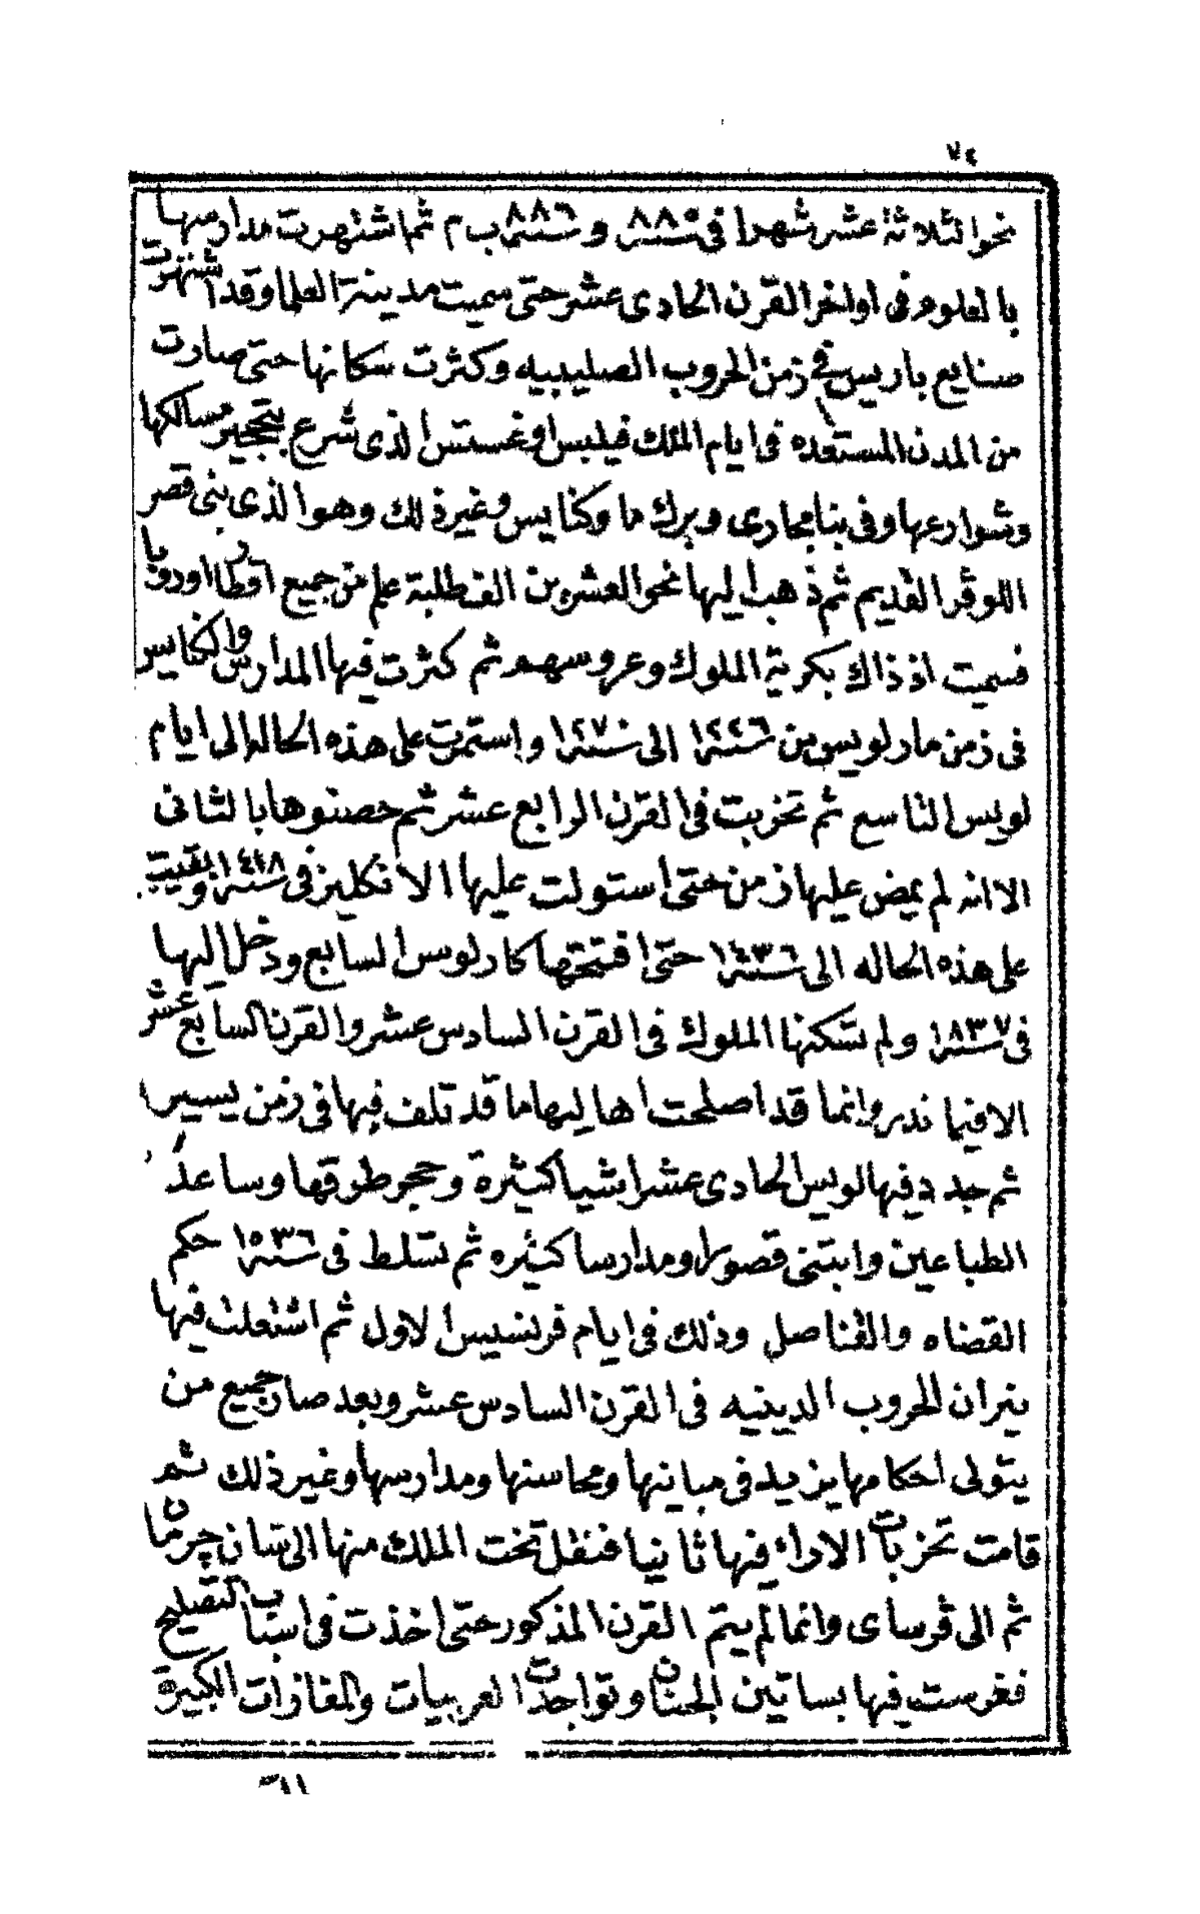 ٧٤
نحوا لثلاثة عشر شهرا فى سنة ٨٨٥ و سنة ٨٨٦ ب م ثما شتهرت مدارسها
بالعلوم فى اواخر القرن الحادى عشر حتى سميت مدينة العلما وقد اشتهرت
صنايع باريس فى زمن الحروب الصليبيه وكثرت سكانها حتى صارت
من المدن المستعده فى ايام الملك فيلبس اوغستس الذى شرع بتحجير مسالكها
وشوارعها وفى بنا مجارى وبرك ما وكنايس وغير ذلك وهو الذى بنى قصر
اللوڤر القديم ثم ذهب اليها نحو العشرين الف طلبة علم من جميع اقطار اوروپا
فسميت اذ ذاك بكرية الملوك وعروسهم ثم كثرت فيها المدارس والكنايس
فى زمن مار لويس من سنة ١٢٢٦ الى سنة ١٢٧٠ واستمرت على هذه الحاله الى ايام
لويس التاسع ثم تخربت فى القرن الرابع عشر ثم حصنوها بالثانى
الا انه لم يمض عليها زمن حتى استولت عليها الانكليز فى سنة ١٤١٨ وبقيت
على هذه الحاله الى سنة ١٤٣٦ حتى افتتحها كارلوس السابع ودخل اليها
فى سنة ١٨٣٧ ولم تسكنها الملوك فى القرن السادس عشر والقرن السابع عشر
الا فيما ندر وانما قد اصلحت اهاليها ما قد تلف فيها فى زمن يسير
ثم جدد فيها لويس الحادى عشر اشيا كثيرة وحجر طرقها وساعد
الطباعين وابتنى قصورا ومدارسا كثيره ثم تسلط فى سنة ١٥٣٦ حكم
القضاه والقناصل وذلك فى ايام فرنسيس الاول ثم اشتعلت فيها
نيران الحروب الدينيه فى القرن السادس عشر وبعد صار جميع من
يتولى احكامها يزيد فى مبانيها ومحاسنها ومدارسها وغير ذلك ثم
قامت تخزبات الاراء فيها ثانيا فنقل تخت الملك منها الى سان چرمان
ثم الى ڤرساى وانما لم يتم القرن المذكور حتى اخذت فى اسباب التصليح
فغرست فيها بساتين الجنان وتواجدت العربيات والمغازات الكبيرة